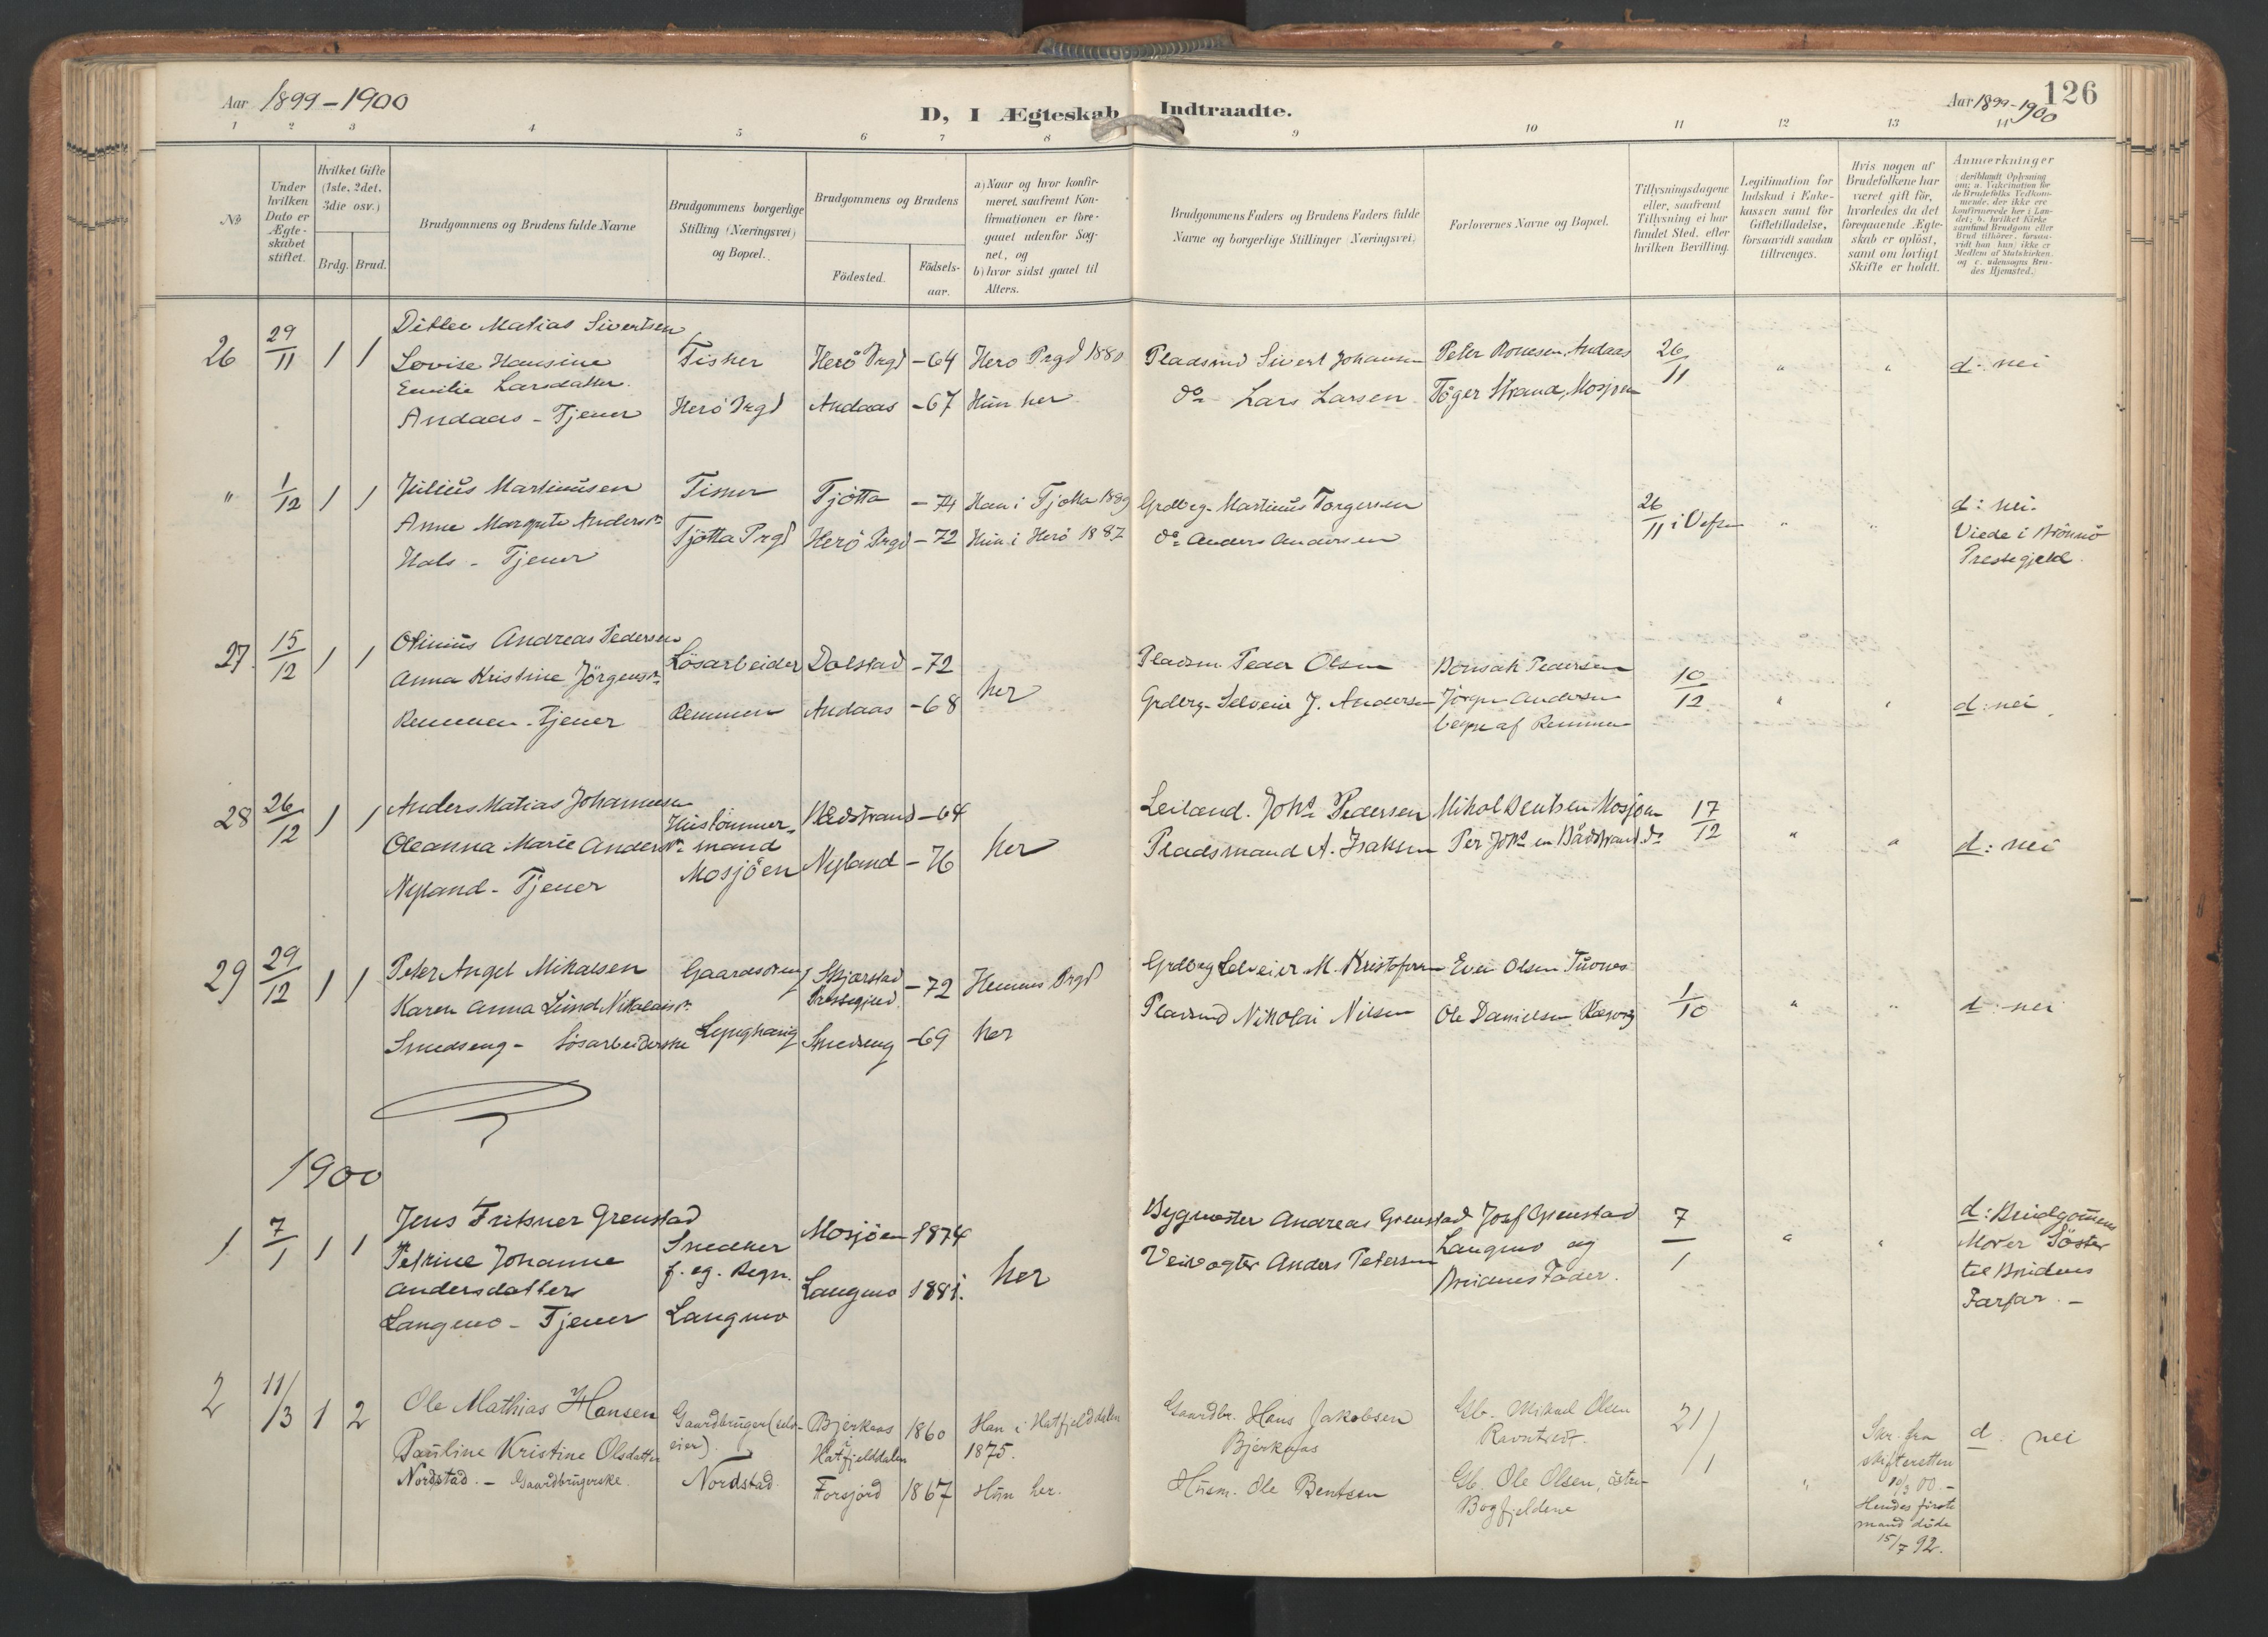 Aar 1899-1900
D, I Ægteskab Indtraadte.
Aar 1899-1900
126
1 2 3 4 5 6 7 8 9 10 11 12 13 14
No
Under hvilken Dato er Ægte-skabet stiftet.
Hvilket Gifte (1ste, 2det, 3die osv.)
Brdg. Brud.
Brudgommens og Brudens fulde Navne
Brudgommens borgerlige Stilling (Næringsvei) og Bopæl.
Brudgommens og Brudens
Fødested.
Fødsels-aar.
a) Naar og hvor konfir-meret, saafremt Kon-firmationen er fore-gaaet udenfor Sog-net, og
b) hvor sidst gaaet til Alters.
Brudgommens Faders og Brudens Faders fulde Navne og borgerlige Stillinger (Næringsvei)
Forlovernes Navne og Bopæl.
Tillysningsdagene eller, saafremt Tillysning ei har fundet Sted, efter hvilken Bevilling.
Legitimation for Indskud i Enke-kassen samt for Giftetilladelse, forsaavidt saadan tiltrænges.
Hvis nogen af Brudefolkene har været gift før, hvorledes da det foregaaende Ægte-skab er opløst, samt om lovligt Skifte er holdt.
Anmærkninger (deriblandt Oplysning om: a. Vakcination for de Brudefolks Vedkom-mende, der ikke ere konfirmerede her i Lan-det; b. hvilket Kirke-samfund Brudgom eller Brud tilhører, forsaa-vidt han (hun) ikke er Medlem af Statskirken, og c. udensogns Bru-des Hjemsted.)
26 29/11 1 1
Ditlev Matias Sivertsen
Lovise Hansine
Emilie Larsdatter
Andaas - Tjener
Fisker
Herö Prgd
Herö Prgd -64
Andaas -67
Herö Prgd 1880
Hun her
Pladsmd Sivert Johansen
do Lars Larsen
Peter Andaas
Töger Strand, Mosjøen
26/11 " "
d: nei
" 1/12 1 1
Julius Martinusen
Anne Margrete Andersdr
Hals - Tjener
Fisker
Tjötta Prgd
Tjötta -74
Herö Prgd -72
Han i Tjötta 1889
Hun i Herö 1887
Grdbrg. Martinus Torgersen
do Anders Andersen
26/11 i Vefsn " "
d: nei.
Viede i Brönnö
Prestegjeld.
27. 15/12 1 1
Olinius Andreas Pedersen
Anna Kristine Jörgensdr
Remmen - Tjener
Lösarbeider
Remmen
Dolstad -72
Andaas -68
her
Pladsm. Peder Olsen
Grdbrg. Selveier J. Andersen
Bonsak Pedersen
Jörgen Andersen
begge af Remmen
10/12 " "
d: nei
28 26/12 1 1
Anders Matias Johannesen
Oleanna Marie Andersdr
Nyland - Tjener
Hustömmer-
mand
Mosjöen
-64
Nyland -76
her
Leiland. Johs Pedersen
Pladsmand A. Isaksen
Mikal Bentsen Mosjøen
Per Johs en do
17/12 " "
d: nei
29 29/12 1 1
Peter Angel Mikalsen
Karen Anna Lund Nikolaisdr
Smedseng - Lösarbeiderske
Lynghaug
Skjerstad
Prestegjeld -72
Smedseng -69
Hemnes Prgd
her
Grdbrg Selveier M. Kristofersen
Pladsmd Nikolai Nilsen
Even Olsen
Ole Danielsen
1/10 " "
d: nei
1900
1 7/1 1 1
Jens Fritzner Grenstad
Petrine Johanne
Andersdatter
Langmo - Tjener
Snedker
f. eg. Regn.
Langmo
Mosjöen 1874
Langmo 1881.
her
Bygmester Andreas Grenstad
Veivogter Anders Petersen
Josef Grenstad
Langmo og
Brudens Fader.
7/1 " "
d: Brudgommens
Moder Söster
til Brudens
Farfar. -
2 11/3 1 2
Ole Mathias Hansen
Pauline Kristine Olsdatter
Nordstad. - Gaardbrugerske.
Gaardbruger (selv-
eier).
Nordstad.
Bjerkaas 1860
Hatfjelddalen
Forsjord 1867
Han i Hatfjelddalen
1875.
Hun her.
Gaardbr. Hans Jakobsen
Bjerkaas
Husm. Ole Bentsen
Gb. Mikael Olsen
Gb. Ole Olsen, östre
Bogfjeldene
21/1 "
Skr. fra
skifteretten
10/3 00. -
Hendes förste
mand döde
15/7 92.
d. nei